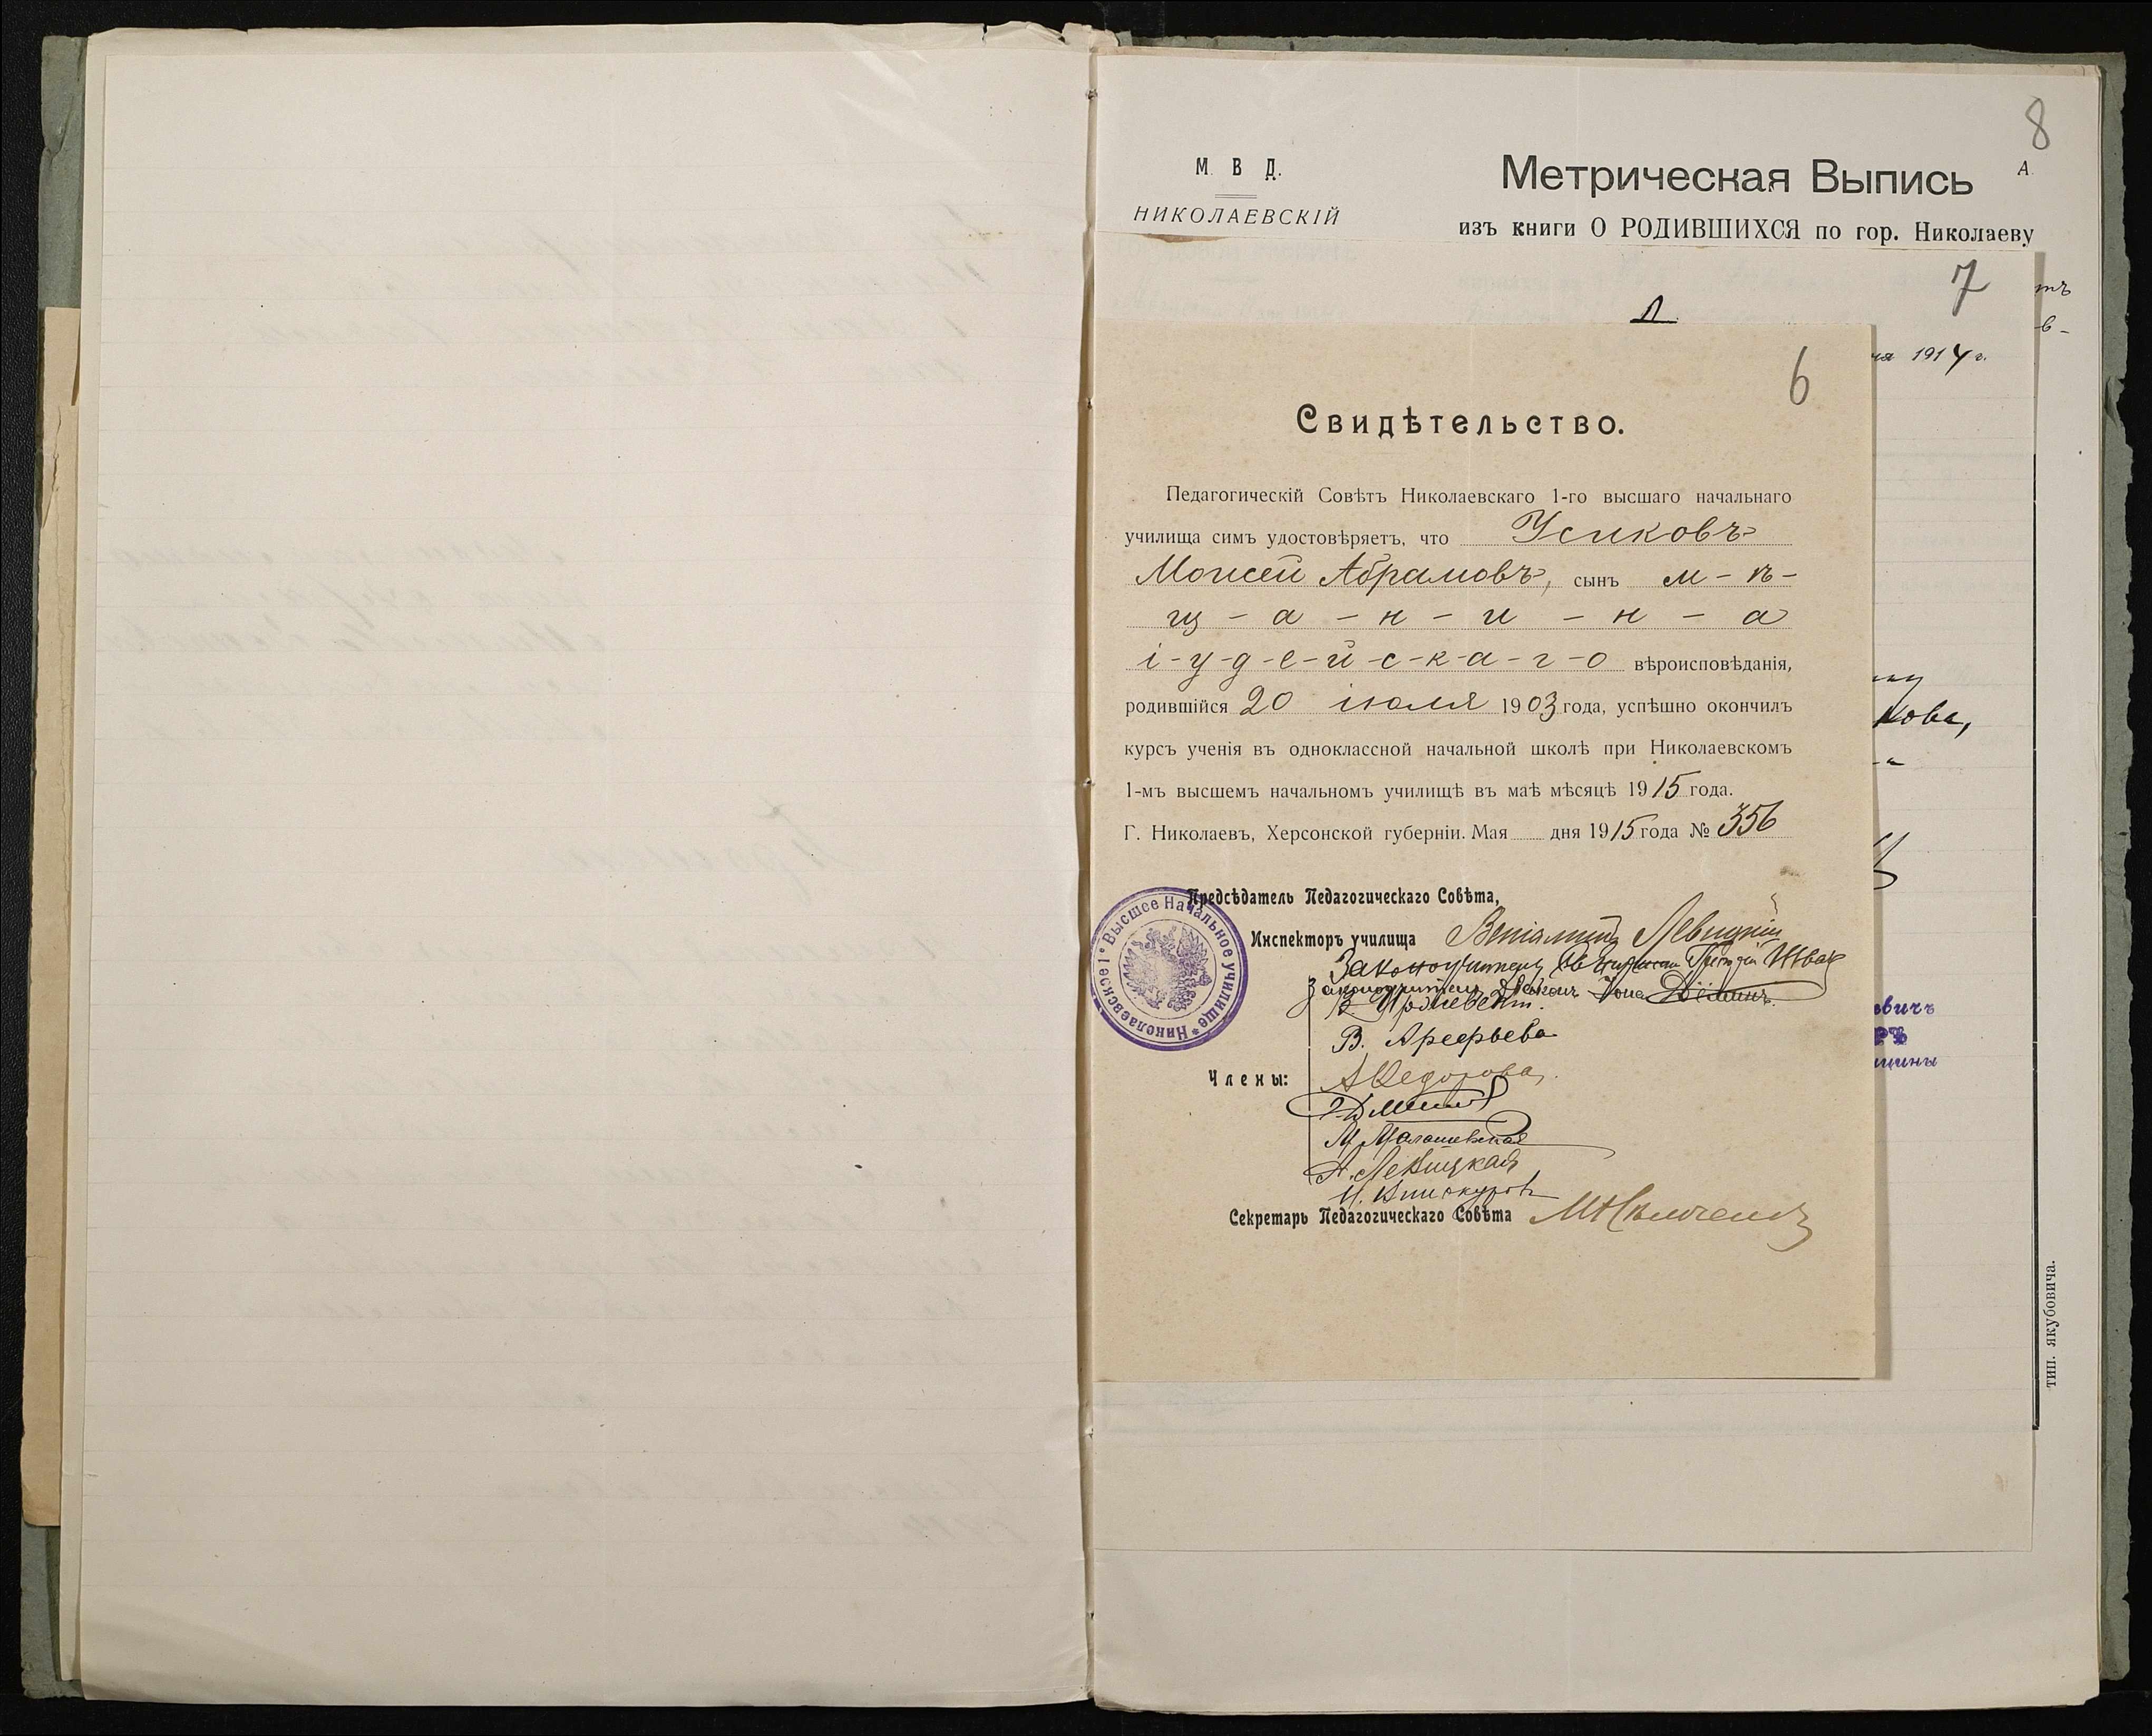 8
А.
М. В. Д.
НИКОЛАЕВСКІЙ
Метрическая Выпись
изъ книги О РОДИВШИХСЯ по гор. Николаеву
7
тъ
в-
1914 г.
6
Свидѣтельство.
Педагогическій Совѣтъ Николаевскаго 1-го высшаго начальнаго
училища симъ удостовѣряетъ, что Усиковъ
Моисей Абрамовъ, сынъ м-ѣ-
щ-а-н-и-н-а
і-у-д-е-й-с-к-а-г-о вѣроисповѣданія,
родившійся 20 іюля 1903 года, успѣшно окончилъ
курсъ ученія въ одноклассной начальной школѣ при Николаевскомъ
1-мъ высшемъ начальномъ училищѣ въ маѣ мѣсяцѣ 1915 года.
Г. Николаевъ, Херсонской губерніи. Мая дня 1915 года № 356
кова,
Предсѣдатель Педагогическаго Совѣта,
Инспекторъ училища Веніаминъ Левицкій
Законоучитель
Законоучитель Діаконъ Іона Дёминъ.
В. Арефьева
Члены: А Федорова
А. Левицкая
И. Винокуровъ
Секретарь Педагогическаго Совѣта
Николаевское 1е Высшее Начальное училище
евичъ
щины
тип. якубовича.